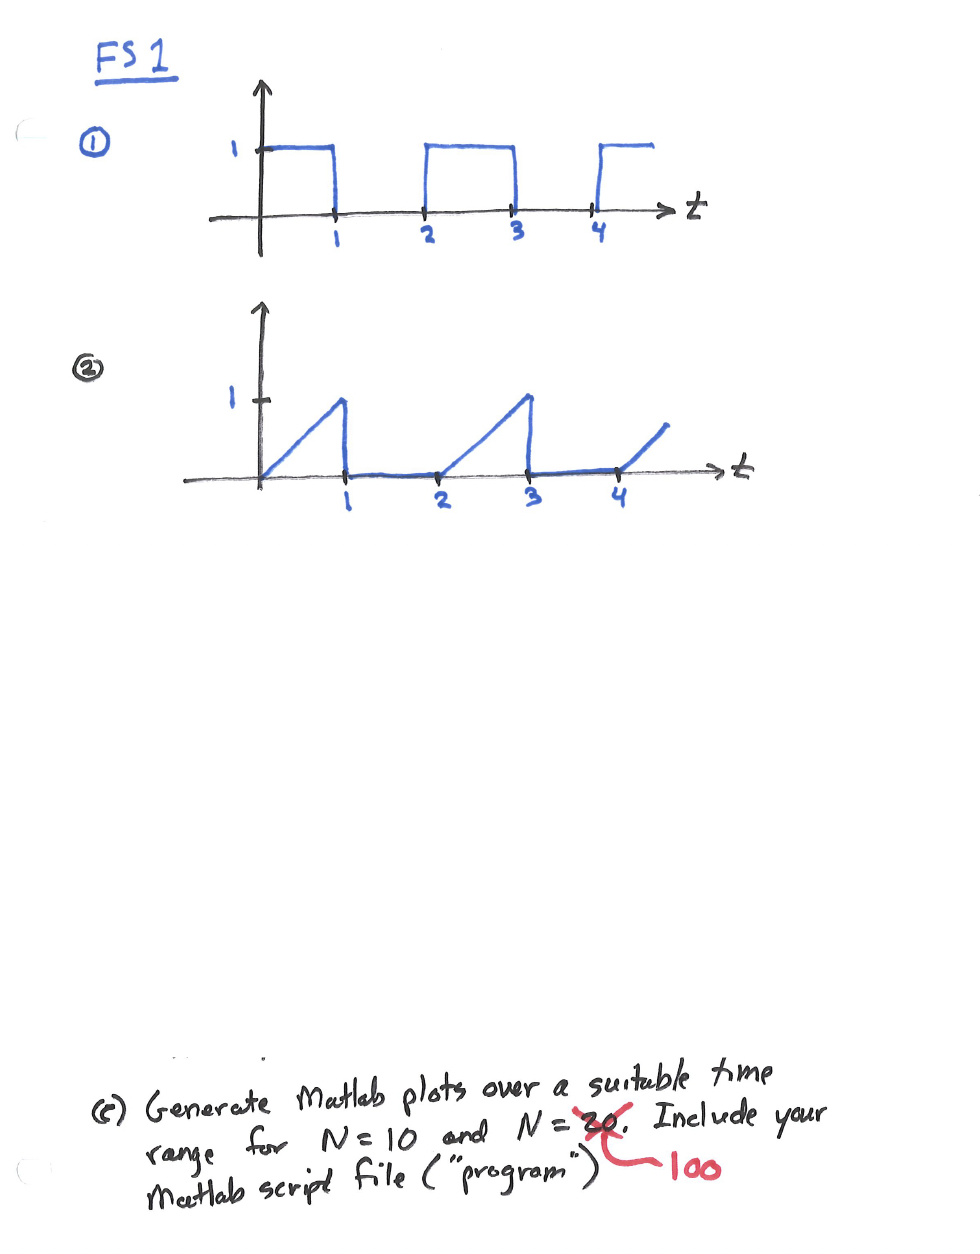 FS 1
①
1
t
1 2 3 4
②
1
t
1 2 3 4
(c) Generate Matlab plots over a suitable time
range for N = 10 and N = 20. Include your
100
Matlab script file ("program")